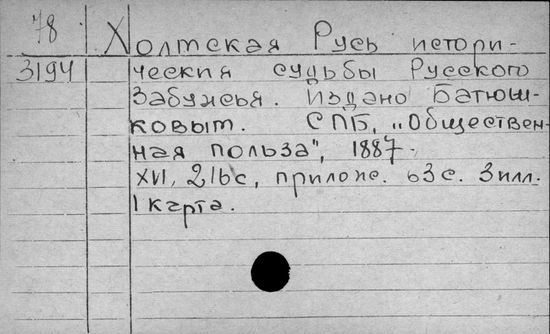 78 Холмская Русь истори-
3194 ческия судьбы Русского
Забужья. Издано Батюш-
ковым. СПБ, „Обществен-
ная польза", 1887.
XVI, 216с, прилож. 63с. 3илл.
1 карта.